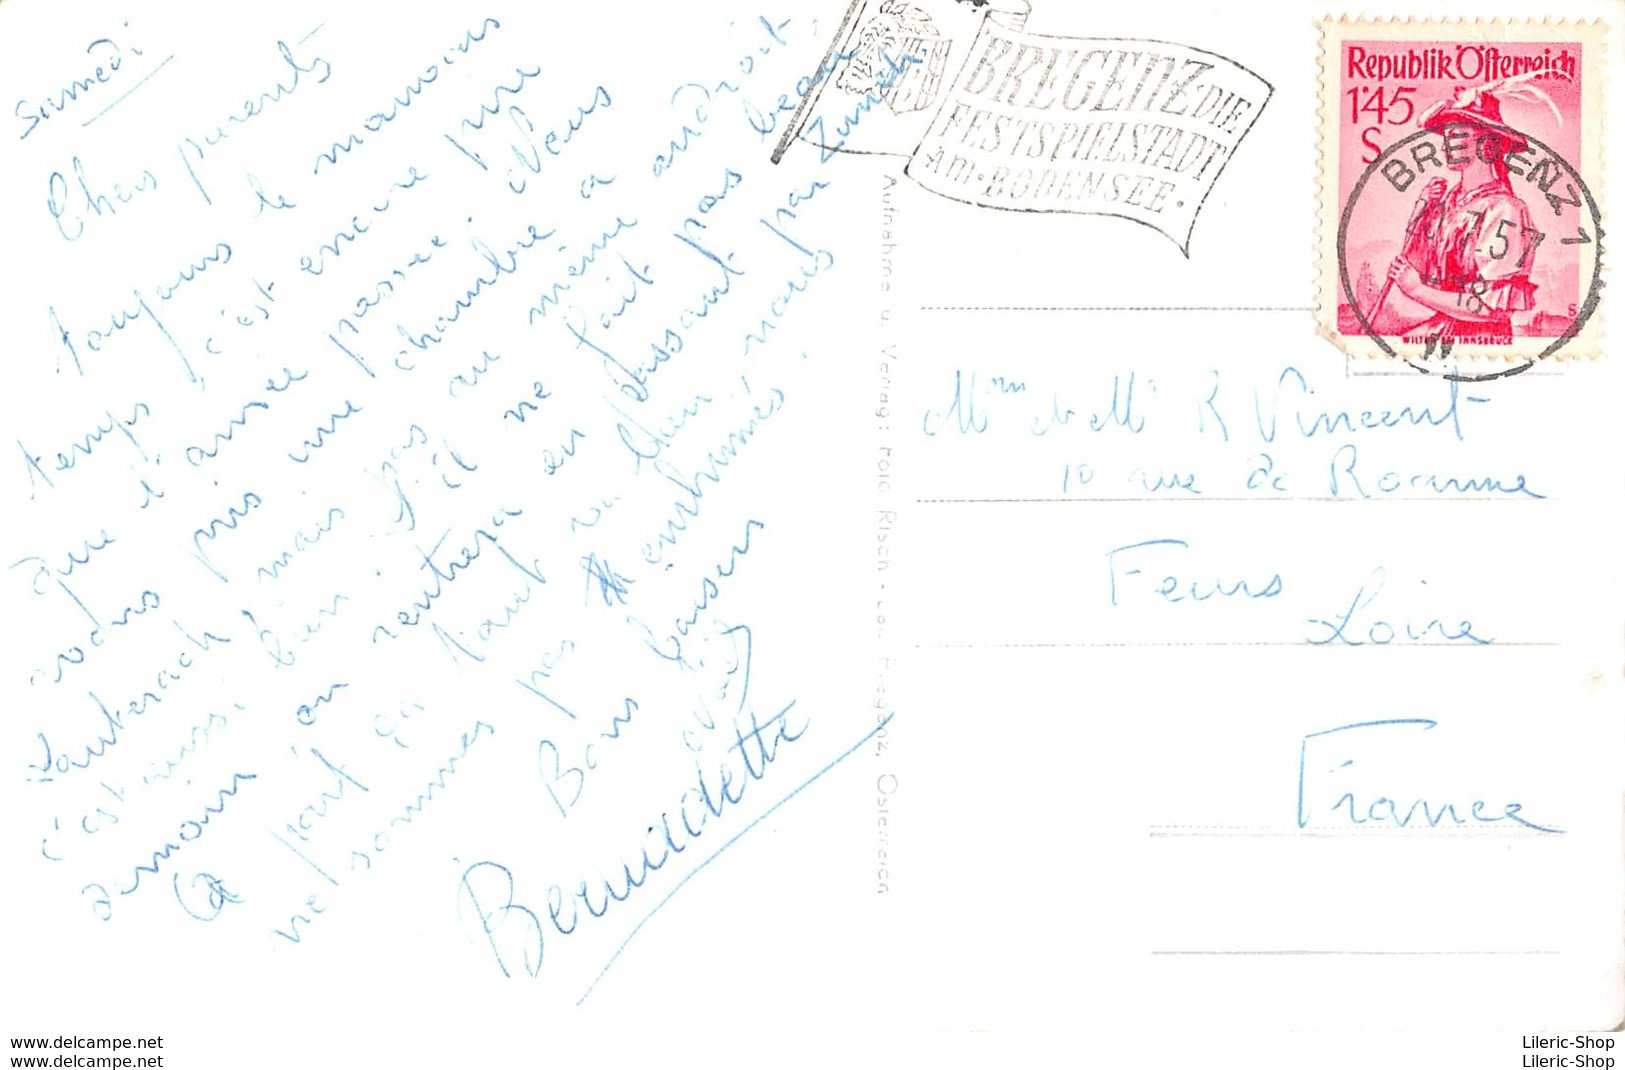 Samedi
Chers parents
toujours le mauvais
temps c'est encore pire
que l'année passée. Nous
avons pris une chambre a
Lauterach mais pas au même endroit.
c'est aussi bien. S'il ne fait pas beau
demain on rentrera en passant par Zurich
A part ça tout va bien, nous
ne sommes pas enrhumés.
Bons baisers
Bernadette
BREGENZ·DIE
FESTSPIELSTADT
AM·BODENSEE·
Republik Österreich
1'45
S
WILTEN BEI INNSBRUCK
BREGENZ 1
20.7.57
18
Mme et Mr R Vincent
10 rue de Roanne
Feurs
Loire
France
Aufnahme u. Verlag: Foto Risch-Lau, Bregenz, Österreich
www.delcampe.net
www.delcampe.net
Lileric-Shop
Lileric-Shop